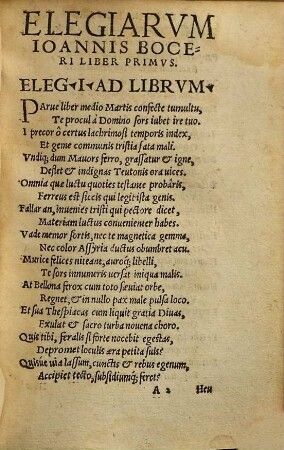 ELEGIARVM
IOANNIS BOCE-
RI LIBER PRIMVS.
ELEG·I·AD LIBRVM·
PArue liber medio Martis confecte tumultu,
Te procul à Domino sors iubet ire tuo.
I precor ô certus lachrimosi temporis index,
Et geme communis tristia fata mali.
Vndiq; dum Mauors ferro, grassatur & igne,
Deflet & indignas Teutonis ora uices.
Omnia quæ luctu quoties testante probâris,
Ferreus est siccis qui legit ista genis.
Fallar an, inuenies tristi qui pectore dicet,
Materiam luctus conuenienter habes.
Vade memor sortis, nec te magnetica gemma,
Nec color Aßyria ductus obumbret acu.
Murice felices niteant, auroq; libelli,
Te sors innumeris uersat iniqua malis.
At Bellona ferox cum toto sæuiat orbe,
Regnet, & in nullo pax male pulsa loco.
Et sua Thespiacas cum liquit gratia Diuas,
Exulat & sacro turba nouena choro.
Quis tibi, feralis si forte nocebit egestas,
Depromet loculis æra petita suis?
Quisue uia lassum, cunctis & rebus egenum,
Accipiet tecto, subsidiumq; feret?
A 2 Heu